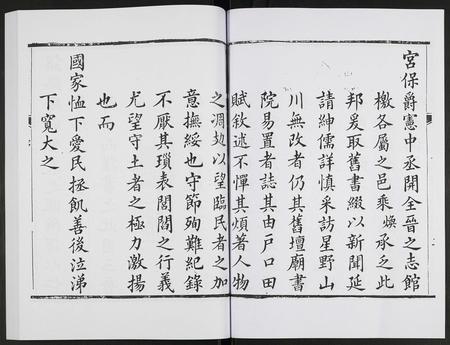 宮保爵憲中丞開全晉之志館
檄各屬之邑乘煥承乏此
邦爰取舊書綴以新聞延
請紳儒詳慎采訪星野山
川無改者仍其舊壇廟書
院易置者誌其由戶口田
賦敘述不憚其煩著人物
之凋劫以望臨民者之加
意撫綏也守節殉難紀錄
不厭其瑣表閭閻之行義
尤望守土者之極力激揚
也而
國家恤下愛民拯飢善後泣涕
下寬大之